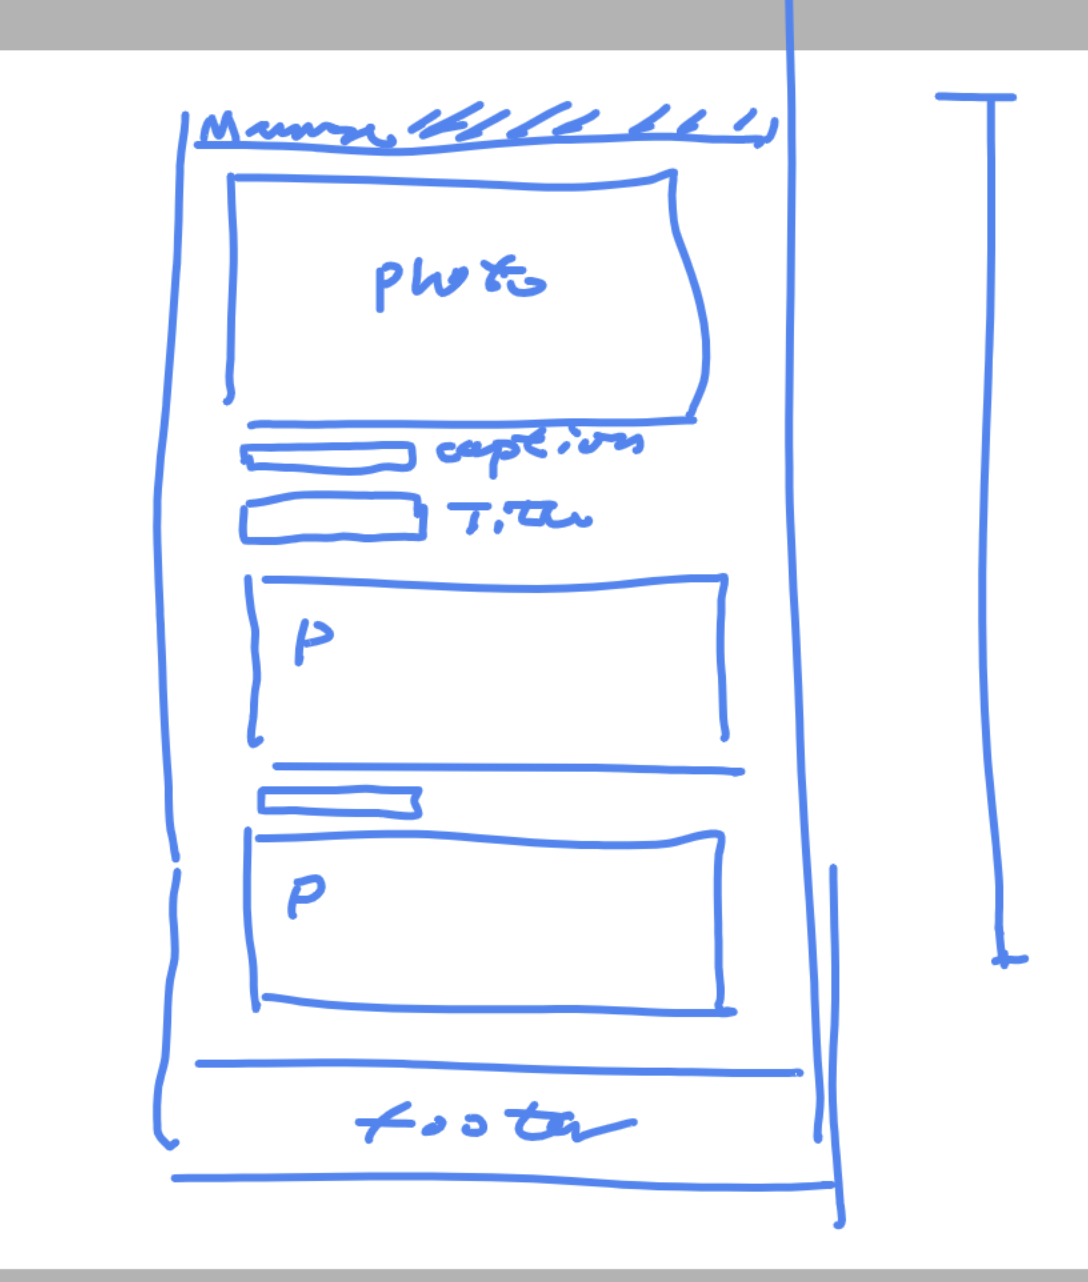 photo
caption
Title
P
P
footer